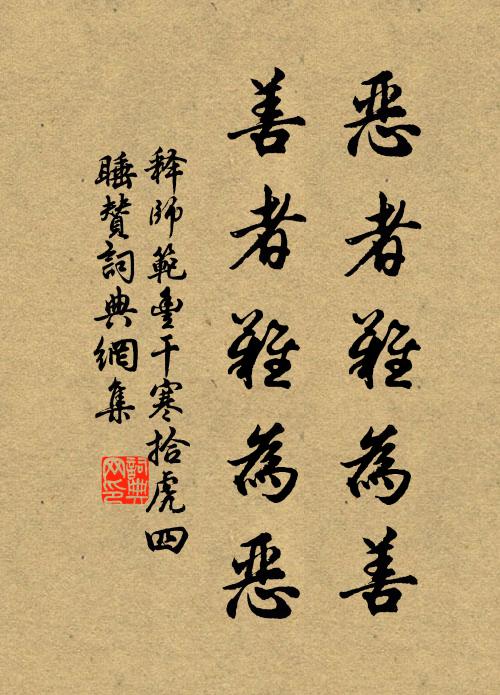 惡者難為善
善者難為惡
釋師範豊干寒拾虎四
睡贊詞典網集
詞典
网印